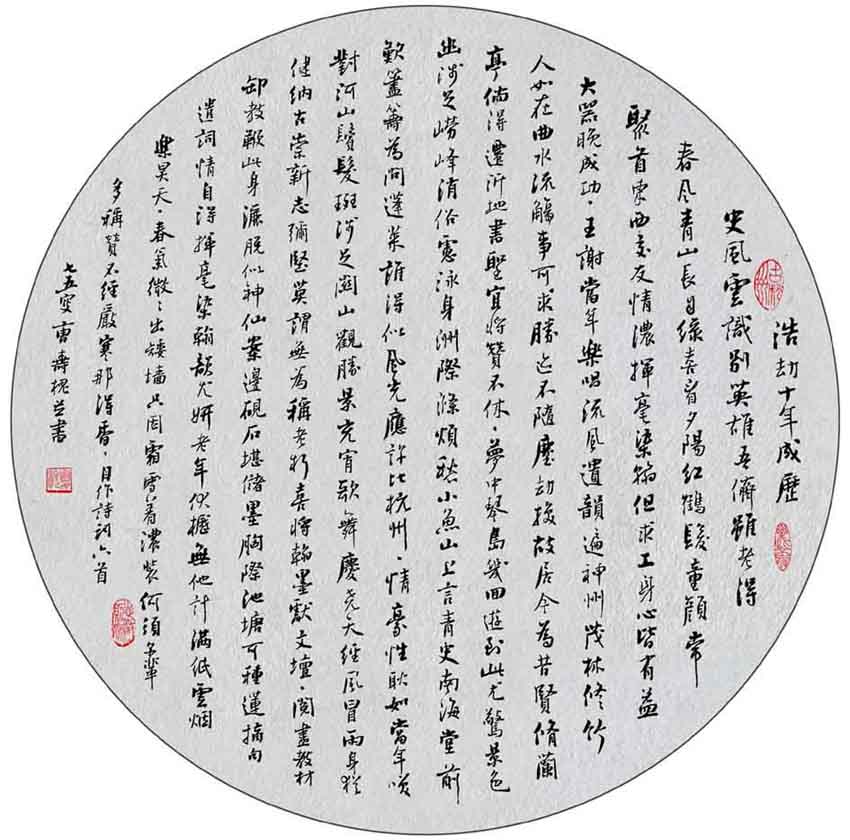 浩劫十年成歷
史風雲識別英雄吾儕雖老得
春風青山長自綠喜看夕陽紅鶴髮童顏常
聚首東西交友情濃揮毫染翰但求工身心皆有益
大器晚成功王謝當年樂唱流風遺韻遍神州茂林修竹
人如在曲水流觴事可求勝迹不隨塵劫換故居今為昔賢脩蘭
亭倘得遷所地書聖宜將贊不休夢中琴島幾回遊到此尤驚景色
幽涉足嶗峰消俗慮泳身洲際滌煩愁小魚山上言青史南海堂前
歎蓋籌為問蓬萊誰得似風光應許比杭州情豪性耿如當年笑
對河山鬢髮斑涉足關山觀勝景充宵歌舞慶堯天經風冒雨身猶
健納古崇新志彌堅莫謂無為稱老朽喜將翰墨獻文壇閱盡教材
卸教鞭此身濂脫似神仙案邊硯石堪儲墨胸際池塘可種蓮摘句
遺詞情自得揮毫染翰韻尤妍老年伏櫪無他計滿紙雲烟
樂昊天春氣微微出矮墻只因霜雪着濃裝何須多輩
多稱贊不經嚴寒那得香自作詩詞六首
七五叟曹壽槐并書